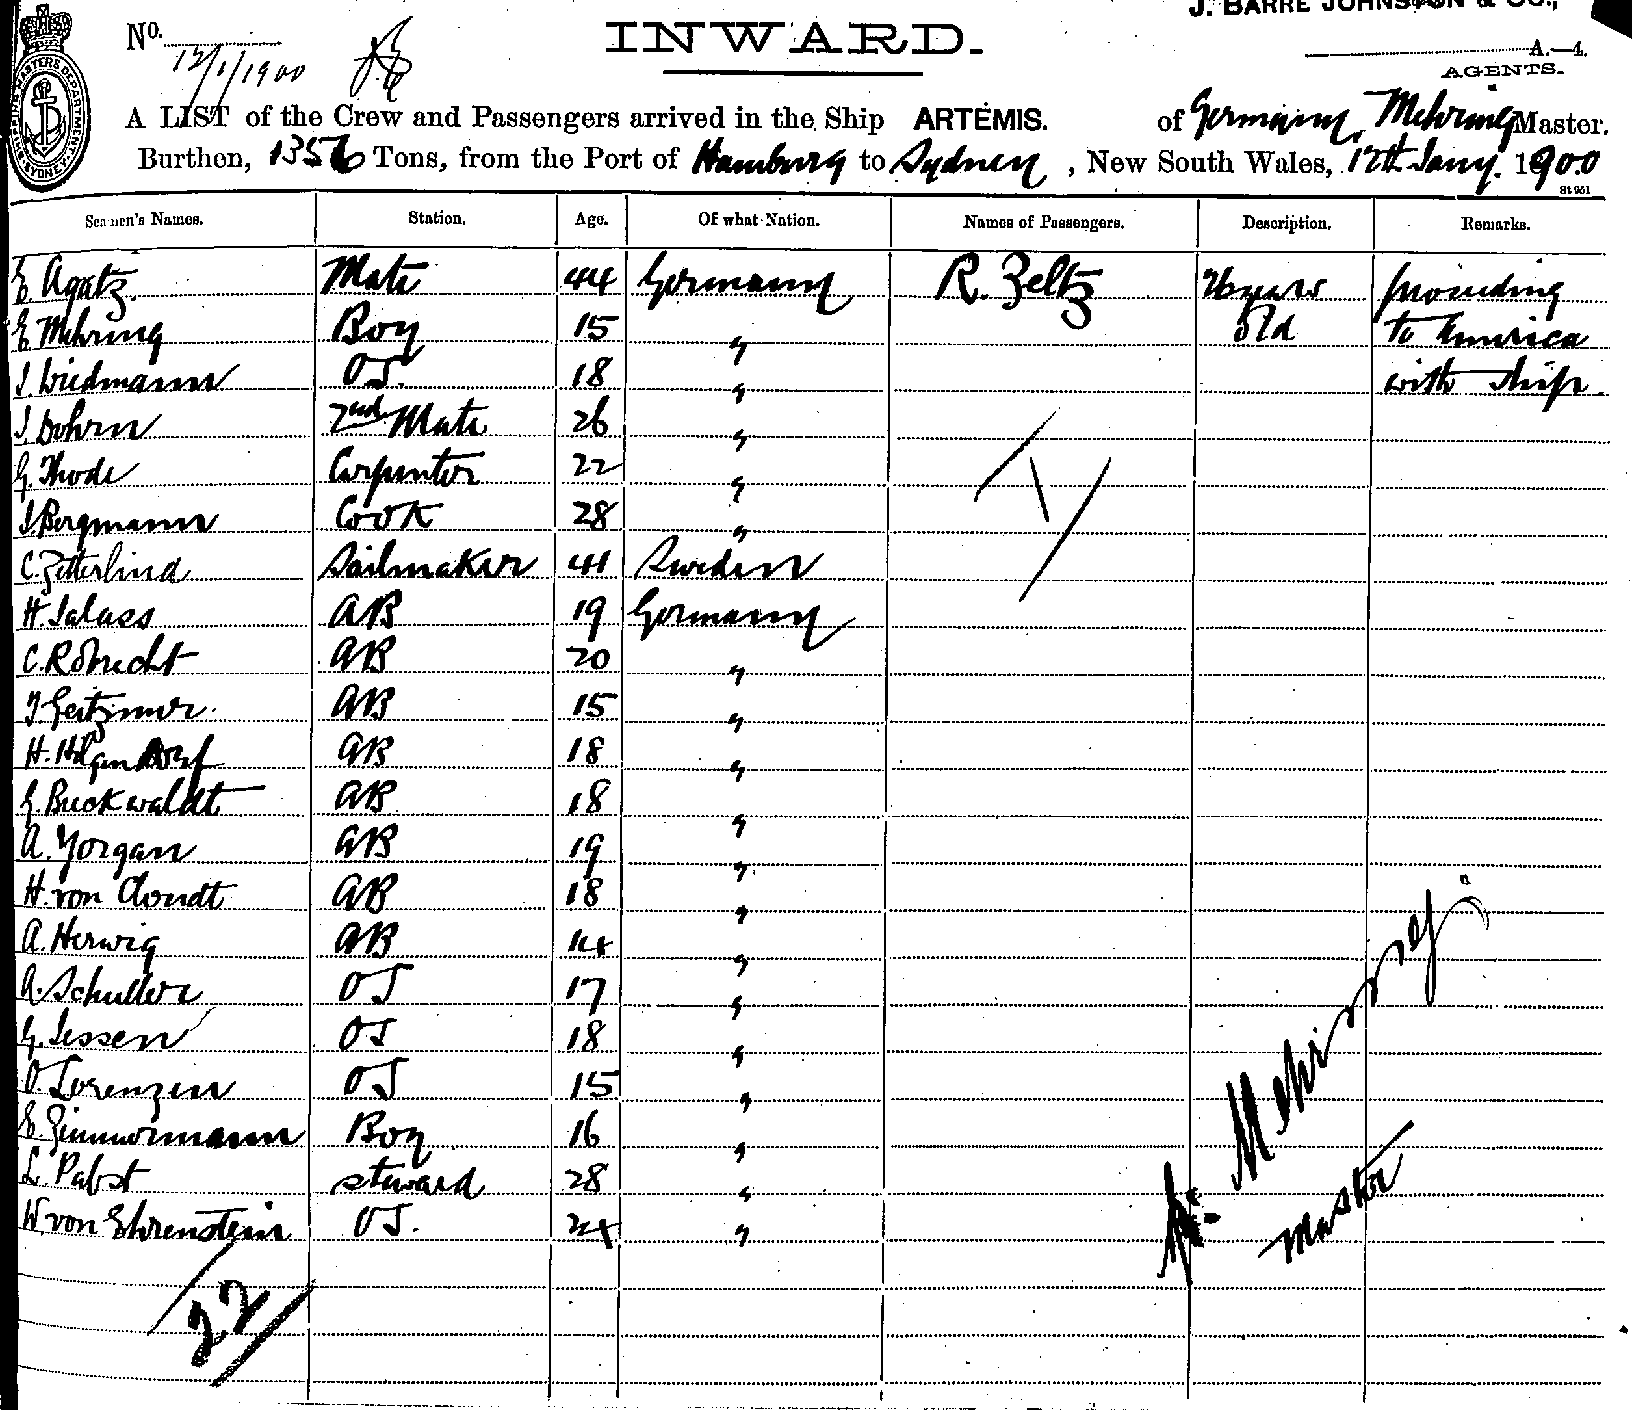 J. BARRE JOHNSTON & CO.,
No.
12/1/1900
INWARD.
A.—4.
AGENTS.
A LIST of the Crew and Passengers arrived in the Ship ARTEMIS. of Germany, Mehring Master.
Burthen, 1356 Tons, from the Port of Hamburg to Sydney, New South Wales, 12th Jany. 1900
Seamen's Names. Station. Age. Of what Nation. Names of Passengers. Description. Remarks.
E. Agatz. Mate 44 Germany R. Zeltz 26 years proceeding
E. Mehring Boy 15 " old to America
J. Wiedmann OS. 18 " with ship.
J. Dohrn 2nd Mate 26 "
G. Thode Carpenter 22 "
J. Bergmann Cook 28 "
C. Zetterlind Sailmaker 41 Sweden
H. Salass AB 19 Germany
C. Robrecht AB 20 "
AB 15 "
H. Hilgendorf AB 18 "
G. Buckwaldt AB 18 "
A. Yorgan AB 19 "
H. von AB 18 "
A. Herwig AB 14 "
A. Schuller OS 17 "
G. Jessen OS 18 "
O. Lorenzen OS 15 "
E. Zimmermann Boy 16 "
L. Pabst steward 28 "
W. von Ehrenstein OS. 24 "
22
Mehring
Master